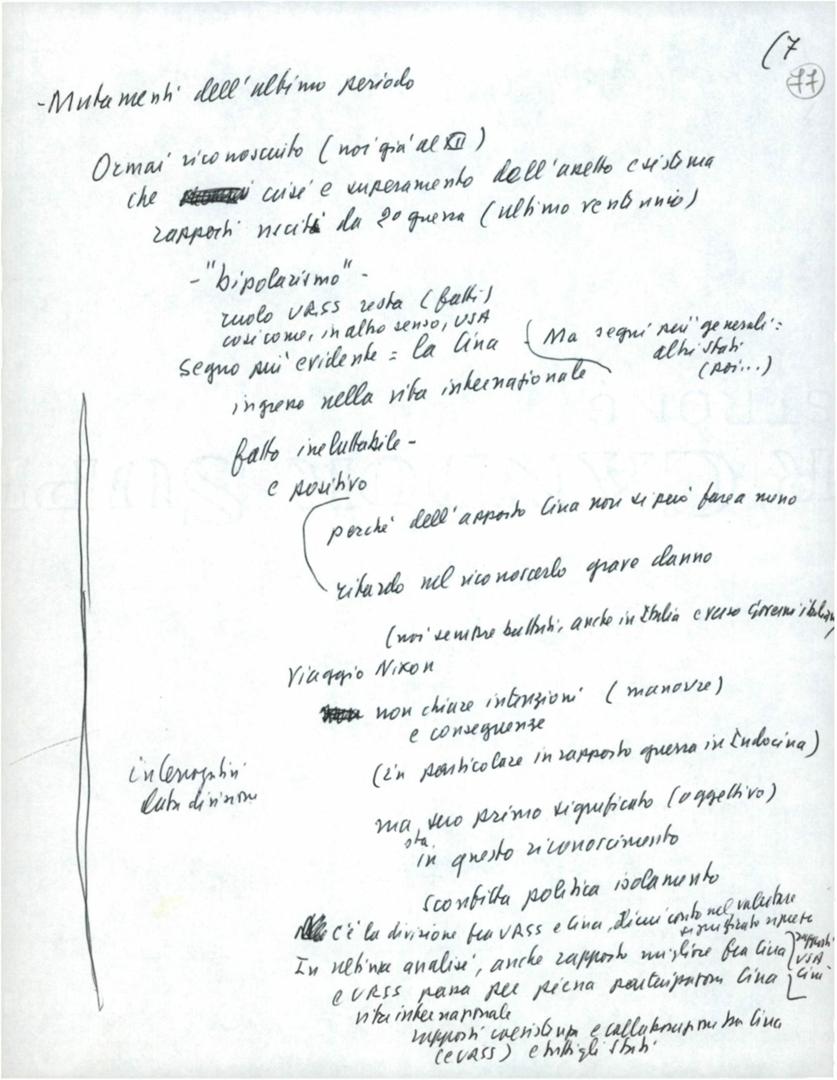 (7
77
- Mutamenti dell'ultimo periodo
Ormai riconosciuto (noi già al XII)
che crisi e superamento dell'assetto e sistema
rapporti usciti da 2º guerra (ultimo ventennio)
- "bipolarismo" -
ruolo URSS resta (fatti)
così come, in altro senso, USA
segno più evidente = la Cina
Ma segni più generali:
altri stati
(poi...)
ingresso nella vita internazionale
fatto ineluttabile -
e positivo
perché dell'apporto Cina non si può fare a meno
ritardo nel riconoscerlo grave danno
(noi sempre battuti, anche in Italia e verso Governi italiani)
Viaggio Nixon
non chiare intenzioni (manovre)
e conseguenze
(in particolare in rapporto guerra in Indocina)
interrogativi
data divisione
ma suo primo significato (oggettivo)
sta
in questo riconoscimento
sconfitta politica isolamento
c'è la divisione fra URSS e Cina, di cui conto nel valutare
significato
rapporti
USA
Cina
In ultima analisi, anche rapporto migliore fra Cina
e URSS passa per piena partecipazione Cina
vita internazionale
rapporti coesistenza e collaborazione tra Cina
(e URSS) e tutti gli Stati